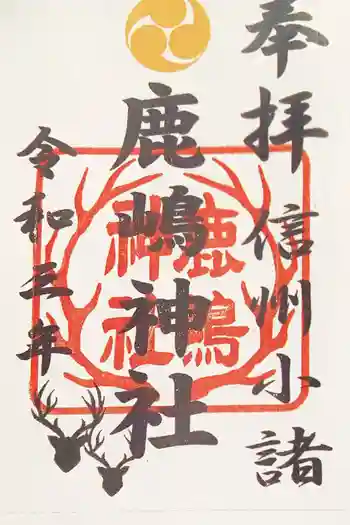 奉拝 信州小諸
鹿嶋神社
鹿嶋
神社
令和三年